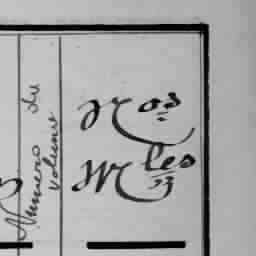 Numero du
volume
Nos
Mles